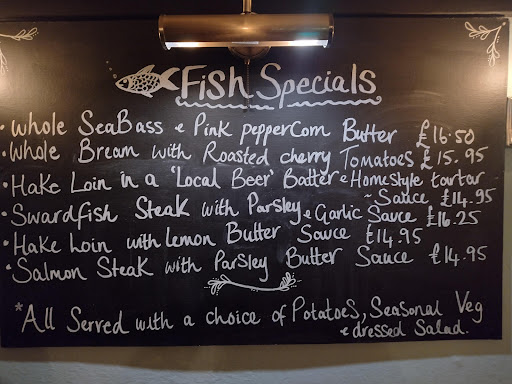 Fish Specials
• Whole SeaBass & Pink peppercorn Butter £16.50
• Whole Bream with Roasted cherry Tomatoes £15.95
• Hake Loin in a 'Local Beer' Batter & Homestyle tartar
~ Sauce £14.95
• Swardfish Steak with Parsley & Garlic Sauce £16.25
• Hake Loin with lemon Butter Sauce £14.95
• Salmon Steak with Parsley Butter Sauce £14.95
*All Served with a choice of Potatoes, Seasonal Veg
& dressed Salad.